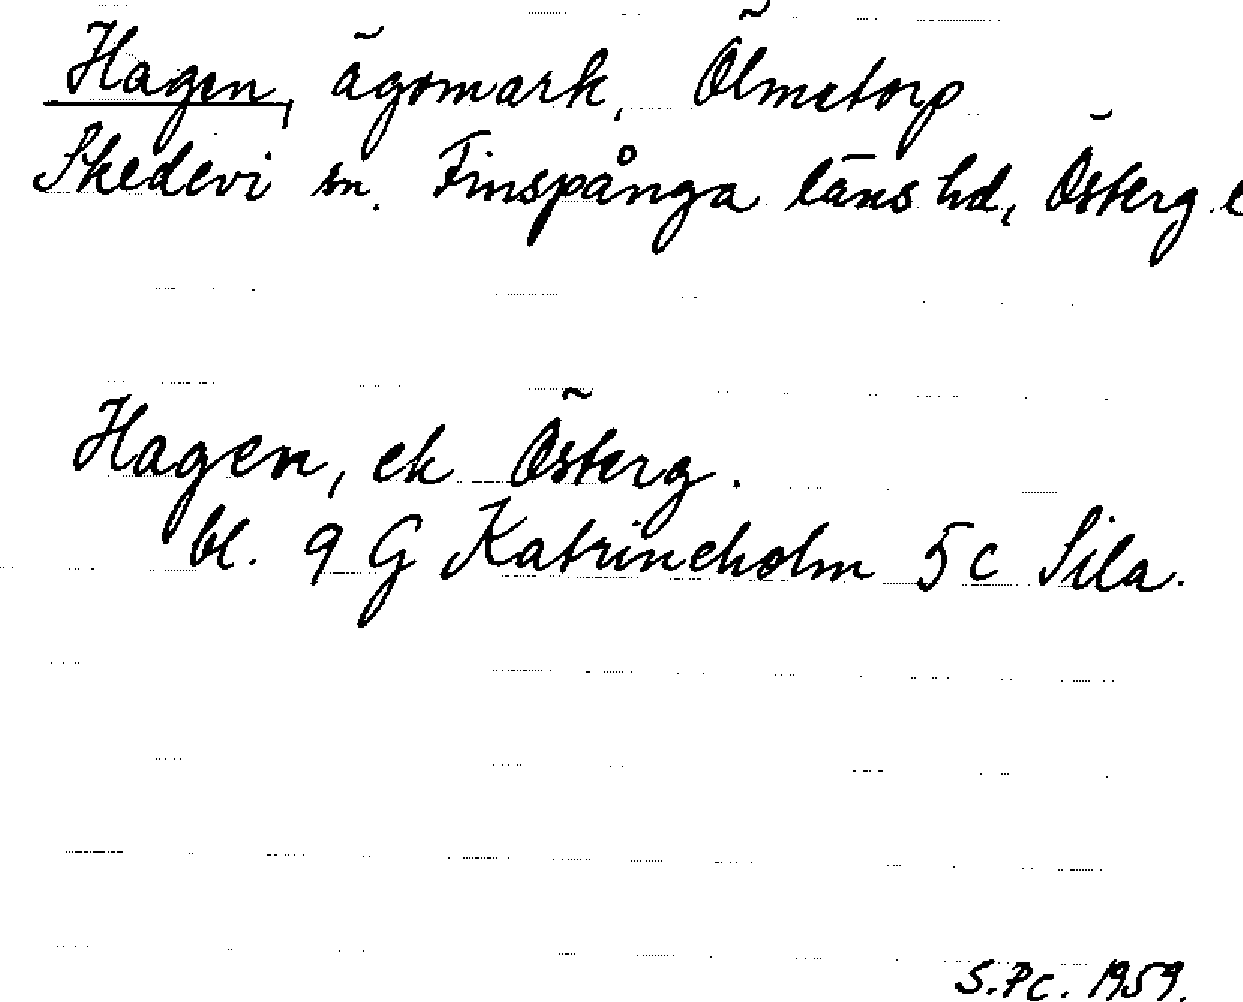 Hagen, ägomark, Ölmetorp
Skedevi sn. Finspånga läns hd, Österg. l
Hagen, ek Österg.
bl. 9 G Katrineholm 5 c Sila.
S.Pc. 1959.